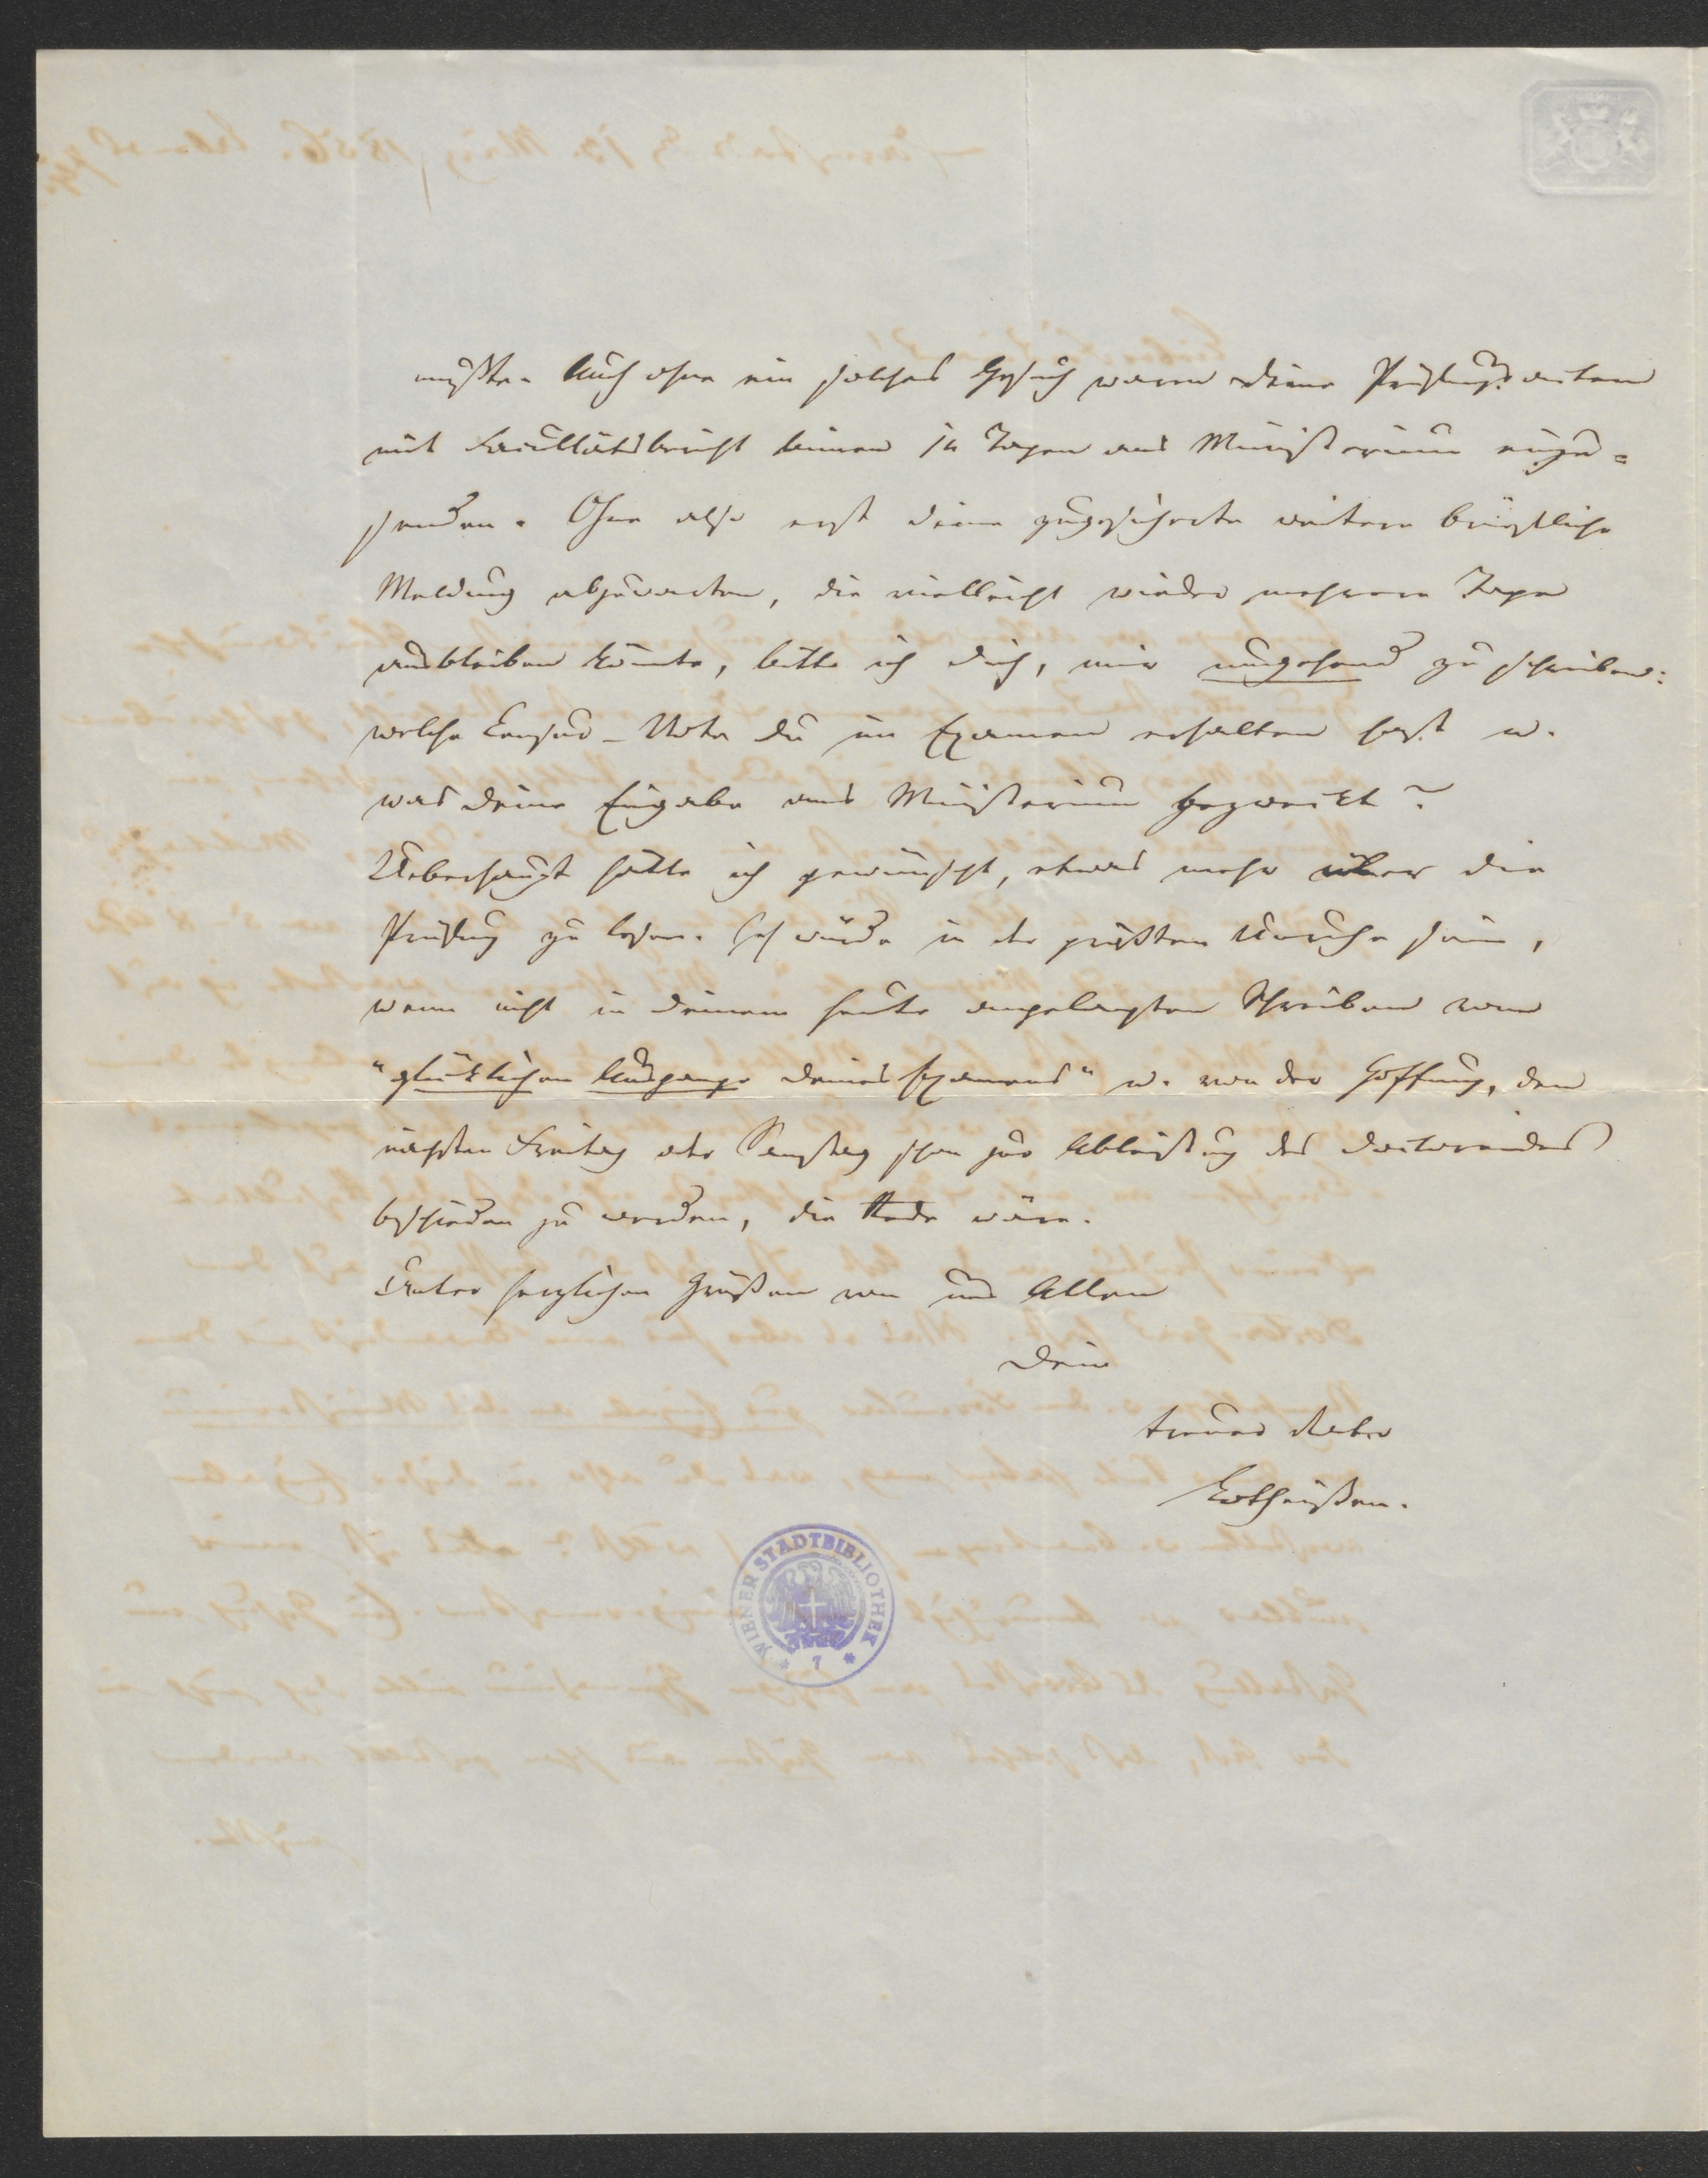 mußte. Auch ohne ein solches Gesuch waren deine Prüfungsacten
mit Facultätsbericht binnen 14 Tagen ans Ministerium einzu=
senden. Ohne also erst deine zugesicherte weitere briefliche
Meldung abzuwarten, die vielleicht wieder mehrere Tage
ausbleiben könnte, bitte ich dich, mir umgehend zu schreiben:
welche Censur-Note du im Examen erhalten hast u.
was deine Eingabe ans Ministerium bezweckt?
Ueberhaupt hätte ich gewünscht, etwas mehr über die
Prüfung zu lesen. Ich würde in der größten Unruhe sein,
wenn nicht in deinem heute angelangten Schreiben vom
"glücklichen Ausgange deines Examens" u. von der Hoffnung, den
nächsten Freitag oder Samstag schon zur Ableistung des Doctoreides
beschieden zu werden, die Rede wäre.
Unter herzlichen Grüßen von uns Allen
Dein
treuer Vater
WIENER STADTBIBLIOTHEK
* 7 *